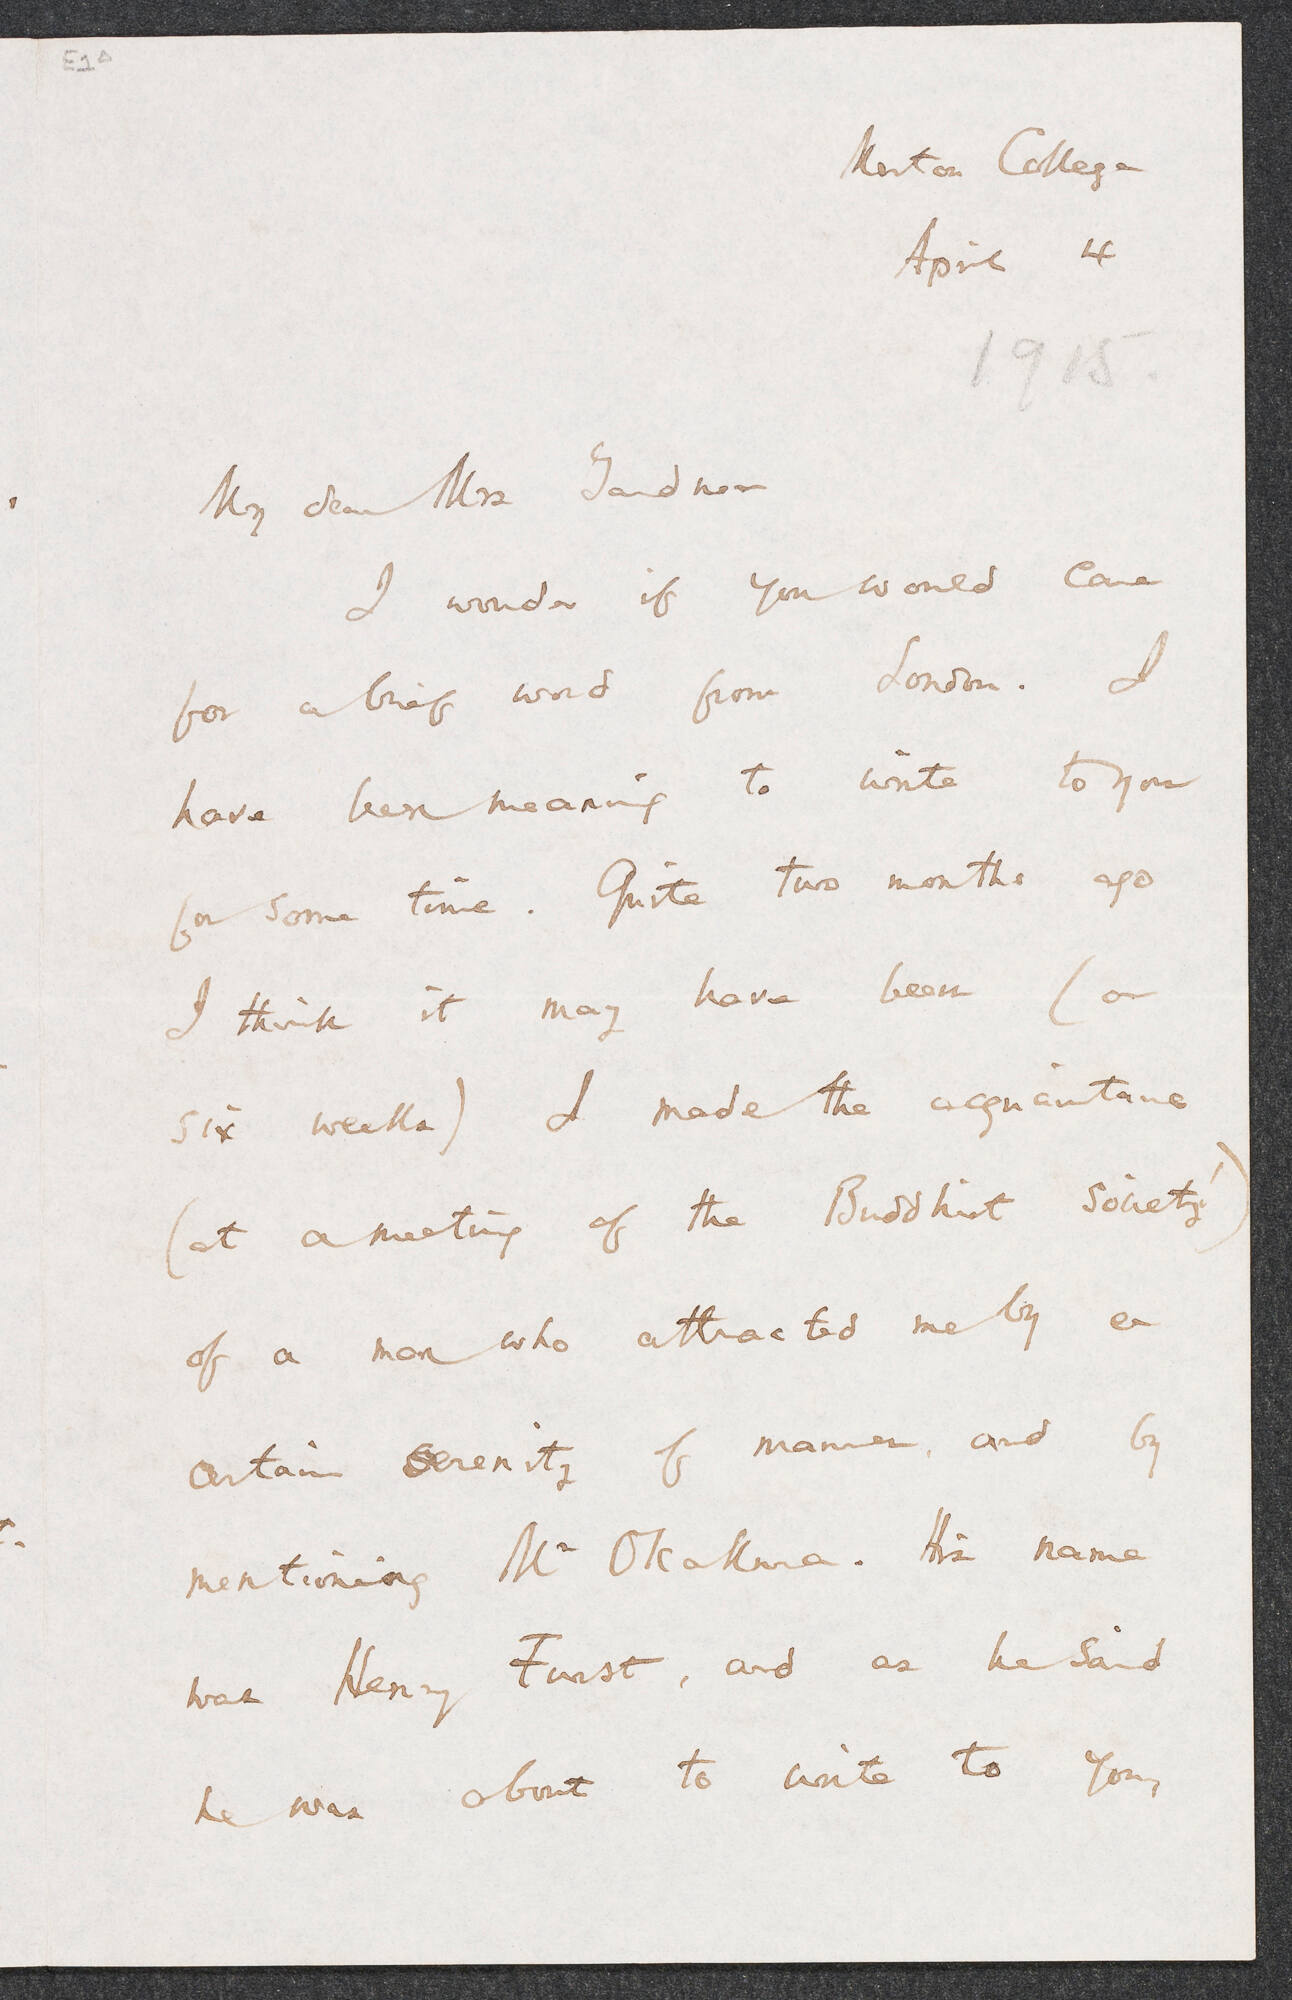 Merton College
April 4
1915.
My dear Mrs Gardner
I wonder if you would care
for a brief word from London. I
have been meaning to write to you
for some time. Quite two months ago
I think it may have been (or
six weeks) I made the acquaintance
(at a meeting of the Buddhist Society!)
of a man who attracted me by a
certain serenity of manner, and by
mentioning Mr Okakura. His name
was Henry Furst, and as he said
he was about to write to you,